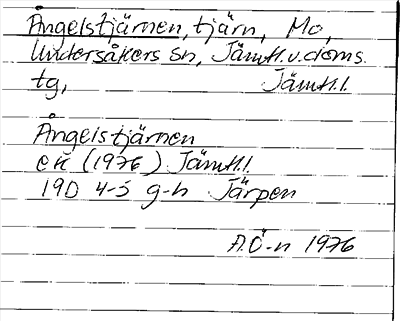 Ångelstjärnen, tjärn, Mo,
Undersåkers sn, Jämtl. v. doms.
tg, Jämtl.l.
Ångelstjärnen
ek (1976) Jämtl.l.
19D 4-5 g-h Järpen
A.Ö-n 1976